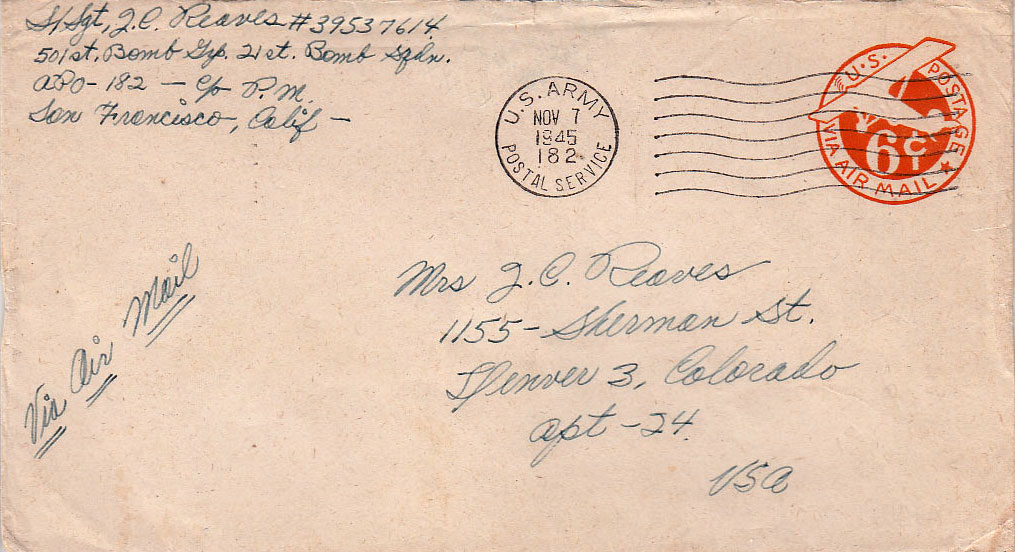 S/Sgt, J.C. Reaves #39537614
501st. Bomb Grp. 21st. Bomb Sqdn.
APO-182 - c/o P.M.
San Francisco, Calif -
U.S. ARMY
NOV 7
1945
182
POSTAL SERVICE
U.S. POSTAGE
6¢
VIA AIR MAIL
Via Air Mail
Mrs J.C. Reaves
1155-Sherman St.
Denver 3, Colorado
Apt-24
USA